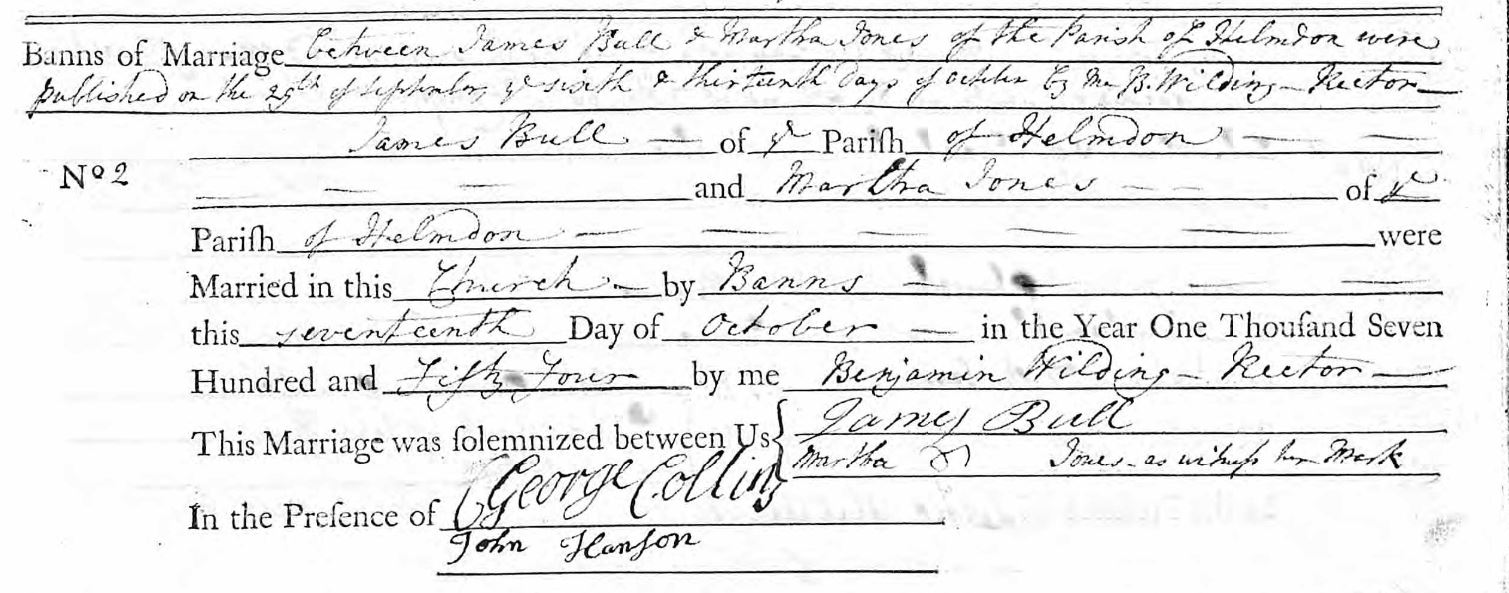 Banns of Marriage between James Bull & Martha Jones of the Parish of Helmdon were
published on the 29th of September ye sixth & thirteenth Days of October by me B. Wilding - Rector
James Bull — of ye Pariſh of Helmdon — —
No 2
— — — and Martha Jones — — of ye
Pariſh of Helmdon — — — — — — were
Married in this Church — by Banns — — — —
this seventeenth Day of October — in the Year One Thouſand Seven
Hundred and Fifty Four by me Benjamin Wilding - Rector —
This Marriage was ſolemnized between Us { James Bull
Martha Jones - as witneſs her Mark
In the Preſence of George Collins
John Hanſon